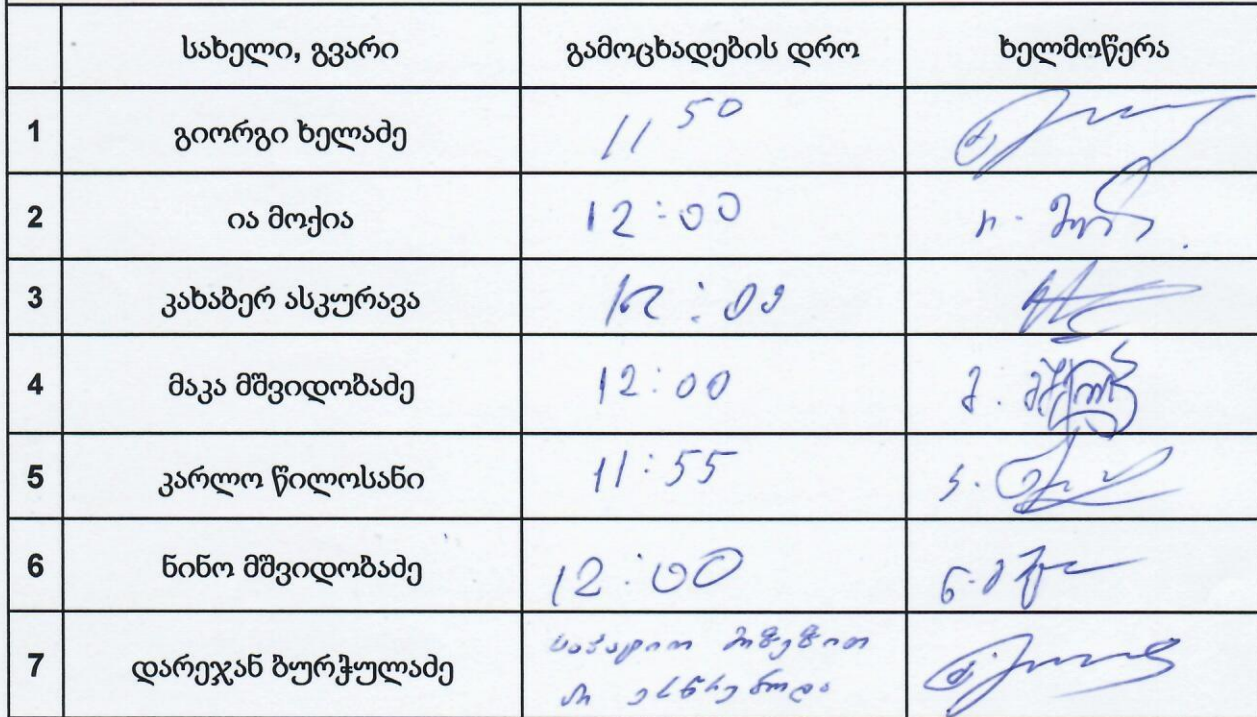 სახელი, გვარი გამოცხადების დრო ხელმოწერა
1 გიორგი ხელაძე 11 50
2 ია მოქია 12:00
3 კახაბერ ასკურავა 12:00
4 მაკა მშვიდობაძე 12:00
5 კარლო წილოსანი 11:55
6 ნინო მშვიდობაძე 12:00
7 დარეჯან ბურჭულაძე საპატიო მიზეზით
არ ესწრებოდა